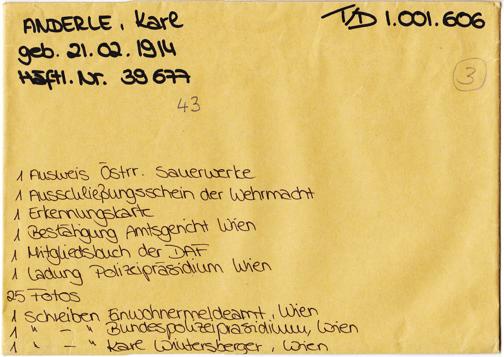 ANDERLE, Karl
T/D 1.001.606
geb. 21.02.1914
Häftl. Nr. 39 677
3
43
1 Ausweis Östrr. Sauerwerke
1 Ausschließungsschein der Wehrmacht
1 Erkennungskarte
1 Bestätigung Amtsgericht Wien
1 Mitgliedsbuch der DAF
1 Ladung Polizeipräsidium Wien
25 Fotos
1 Schreiben Einwohnermeldeamt, Wien
1 " - " Bundespolizeipräsidium, Wien
1 " - " Karl Wintersberger, Wien